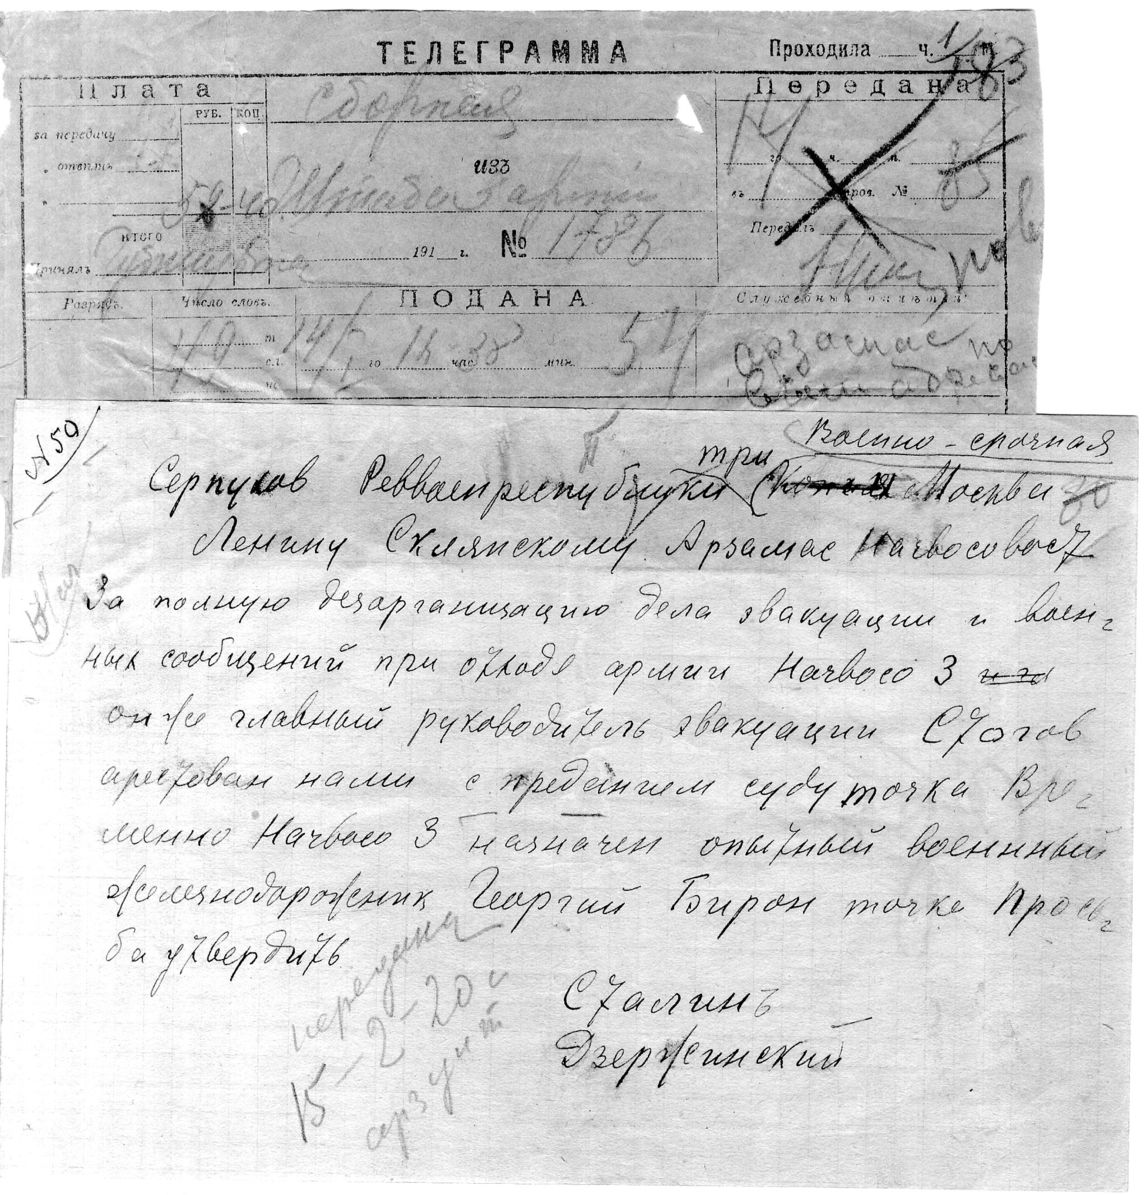 ТЕЛЕГРАММА
Проходила ч. м.
Плата
РУБ. КОП.
за передачу
" отвѣтъ
Итого
Принялъ
Сборная
изъ
191 г. № 1786
Передана
го ч. м.
въ пров. №
Передалъ
Разрядъ. Число словъ. ПОДАНА Служебныя отмѣтки:
49 14/I го 18 час. 38 мин. 54
по
А 50
Военно-срочная
три
Серпухов Реввоенреспублики Москва
Ленину Склянскому Арзамас Начвосовост
За полную дезорганизацию дела эвакуации и воен-
ных сообщений при отходе армии Начвосо 3
он же главный руководитель эвакуации Стогов
арестован нами с преданием суду точка Вре-
менно Начвосо 3 назначен опытный военный
железнодорожник Георгий Бирон точка Прось-
ба утвердить
Сталинъ
Дзержинский
передана
15-2-20